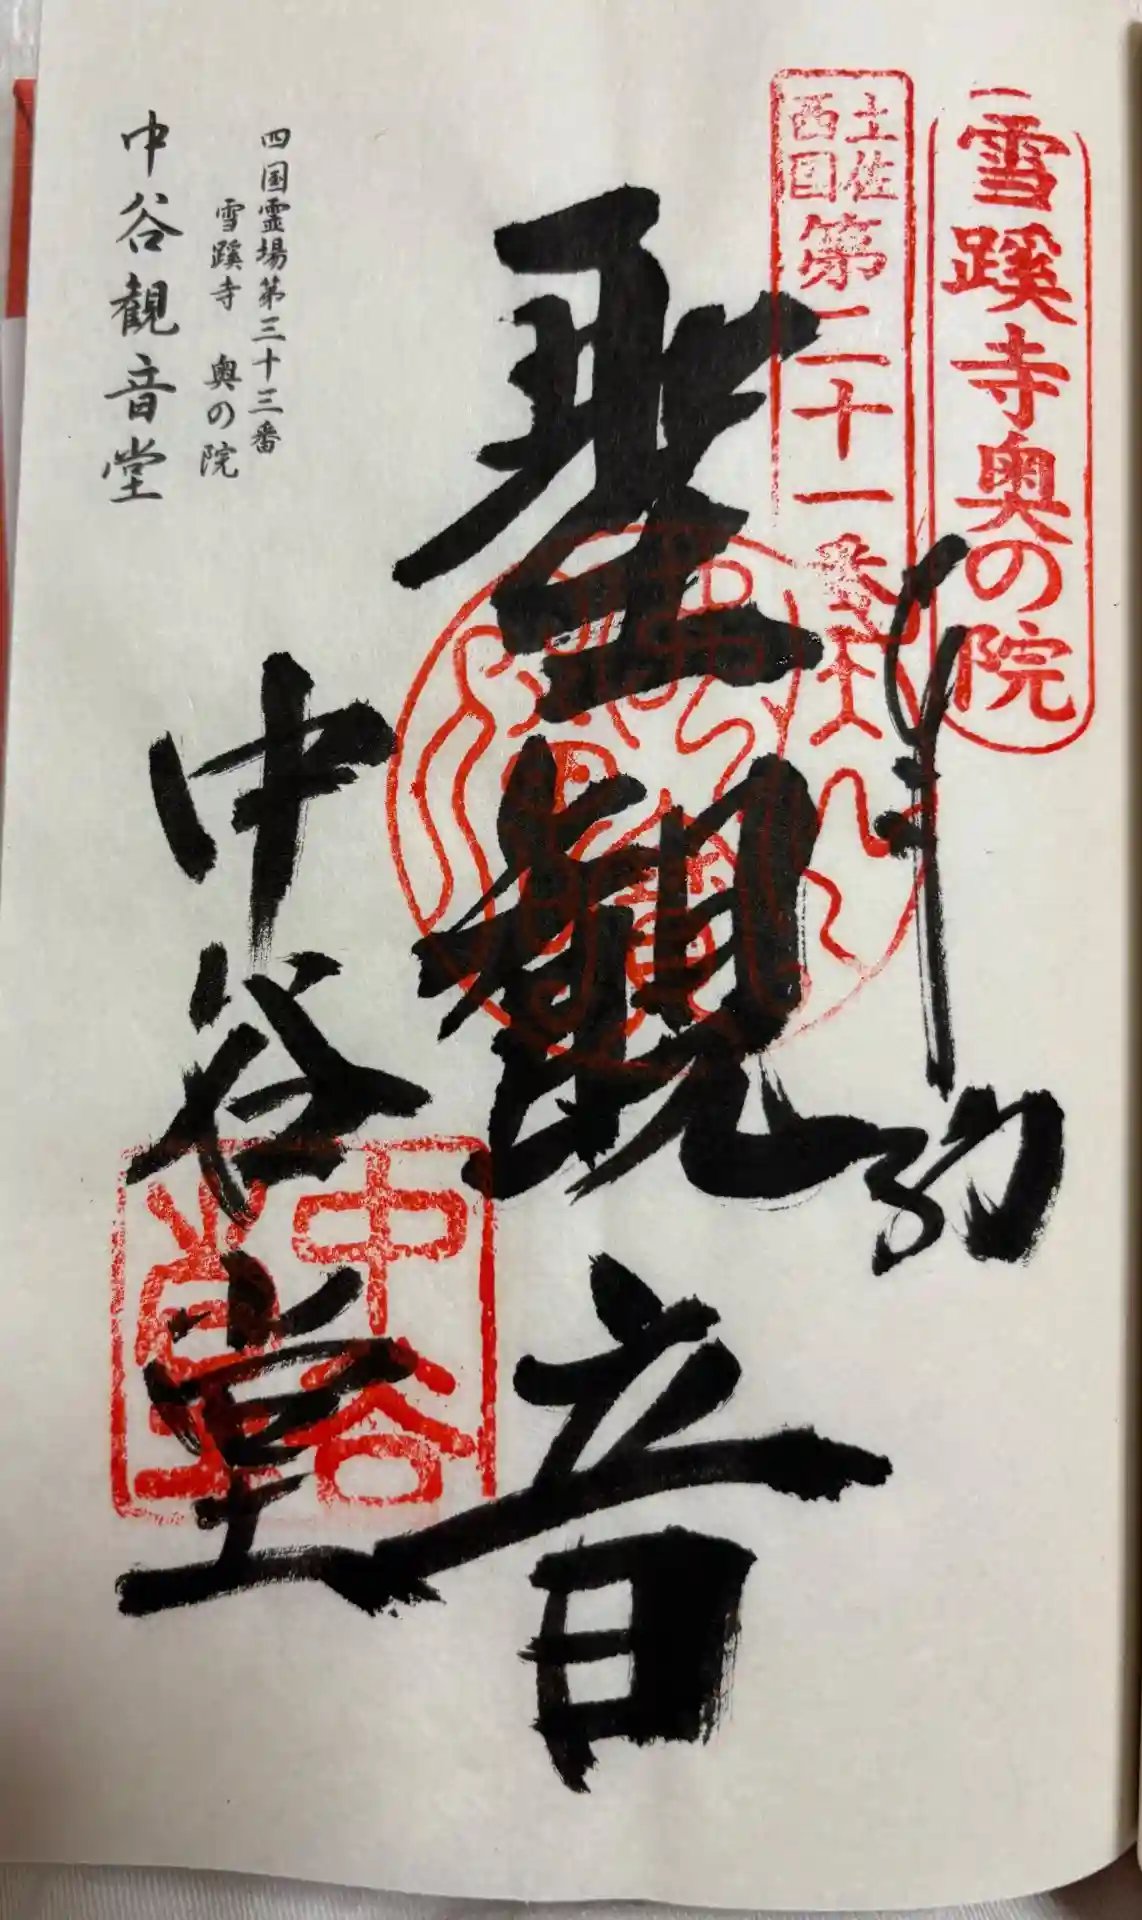 雪蹊寺奥の院
土佐
西国
第二十一番
奉納
聖観音
中谷堂
中谷
四国霊場第三十三番
雪蹊寺 奥の院
中谷観音堂